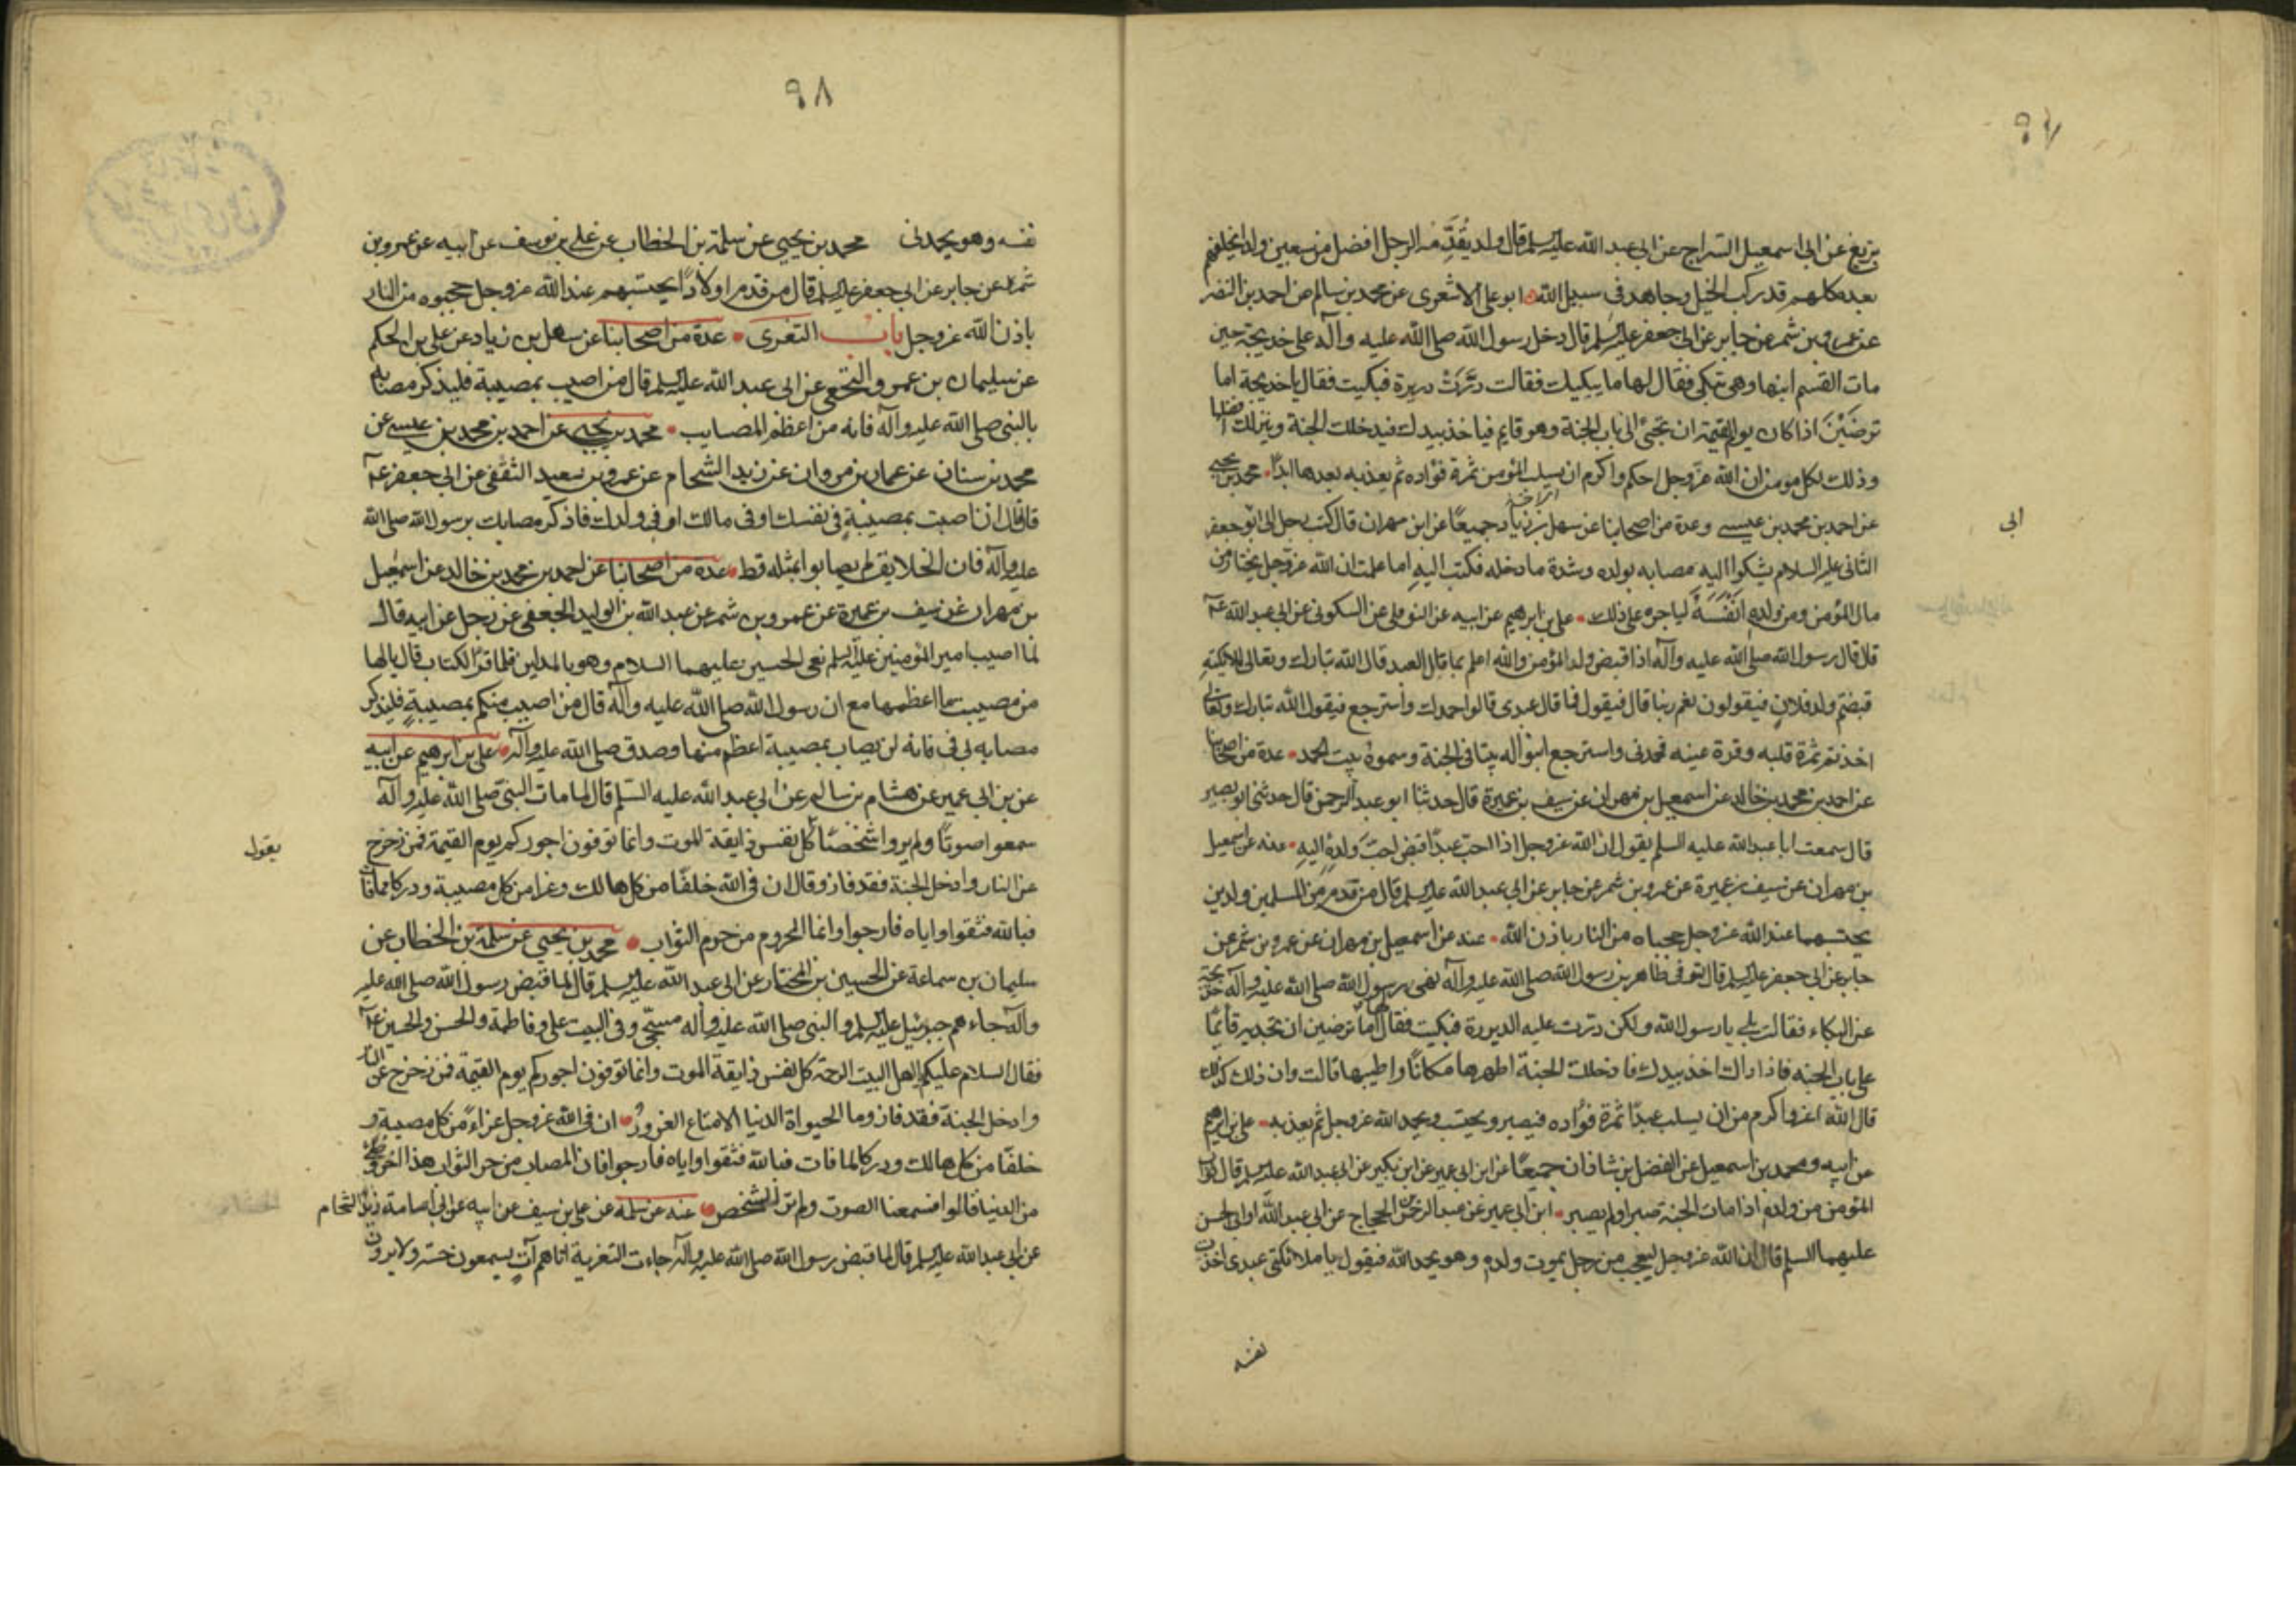 ٩٧
بزيع عن ابى اسمعيل السراج عن ابى عبد الله عليه السلم قال ولد يقدّمه الرجل افضل من سبعين ولدا يخلفهم
بعده كلهم قد ركب الخيل وجاهد فى سبيل الله ابو على الاشعرى عن محمد بن سالم عن احمد بن النضر
عن عمرو بن شمر عن جابر عن ابى جعفر عليه السلم قال دخل رسول الله صلى الله عليه وآله على خديجة حين
مات القسم ابنها وهى تبكى فقال لها ما يبكيك فقالت درّت دريرة فبكيت فقال يا خديجة اما
ترضين اذا كان يوم القيمة ان تجئ الى باب الجنة وهو قايم فياخذ بيدك فيدخلك الجنة وينزلك افضلها
وذلك لكل مومن ان الله عز وجل احكم واكرم ان يسلب المؤمن ثمرة فؤاده ثم يعذبه بعدها ابدًا محمد بن يحيى
عن احمد بن محمد بن عيسى وعدة من اصحابنا عن سهل بن زياد جميعًا عن ابن مهران قال كتب رجل الى ابو جعفر
ابى
الثانى عليه السلام يشكوا اليه مصابه بولده وشدة ما دخله فكتب اليه اما علمت ان الله عز وجل يختار من
مال المؤمن ومن ولده انفسه لياجره على ذلك على بن ابرهيم عن ابيه عن النوفلى عن السكونى عن ابى عبد الله عم
قال قال رسول الله صلى الله عليه وآله اذا قبض ولد المؤمن والله اعلم بما قال العبد قال الله تبارك وتعالى لملائكته
قبضتم ولد فلان فيقولون نعم ربنا قال فيقول فما قال عبدى قالوا حمدك واسترجع فيقول الله تبارك وتعالى
اخذتم ثمرة قلبه وقرة عينه فحمدنى واسترجع ابنوا له بيتا فى الجنة وسموه بيت الحمد عدة من اصحابنا
عن احمد بن محمد بن خالد عن اسمعيل بن مهران عن سيف بن عميرة قال حدثنا ابو عبد الرحمن قال حدثنى ابو بصير
قال سمعت ابا عبد الله عليه السلم يقول ان الله عز وجل اذا احب عبدًا قبض احبّ ولده اليه عنه عن اسمعيل
بن مهران عن سيف بن عميرة عن عمرو بن شمر عن جابر عن ابى عبد الله عليه السلم قال من قدم من المسلمين ولدين
يحتسبهما عند الله عز وجل حجباه من النار باذن الله عنه عن اسمعيل بن مهران عن عمرو بن شمر عن
جابر عن ابى جعفر عليه السلم قال توفى طاهر بن رسول الله صلى الله عليه وآله نهى رسول الله صلى الله عليه وآله خديجة
عن البكاء فقالت بلى يا رسول الله ولكن درت عليه الديرة فبكيت فقال لها اما ترضين ان تجديه قائمًا
على باب الجنه فاذا راك اخذ بيدك فادخلك الجنة اطهرها مكانًا واطيبها قالت وان ذلك كذلك
قال الله اعز واكرم من ان يسلب عبدًا ثمرة فؤاده فيصبر ويحتسب ويحمد الله عز وجل ثم يعذبه على بن ابرهيم
عن ابيه ومحمد بن اسمعيل عن الفضل بن شاذان جميعًا عن ابن ابى عمير عن ابن بكير عن ابى عبد الله عليه السلم قال ثواب
المؤمن من ولده اذا مات الجنة صبر او لم يصبر ابن ابى عمير عن عبد الرحمن بن الحجاج عن ابى عبد الله او ابى الحسن
عليهما السلم قال ان الله عز وجل ليعجب من رجل يموت ولده وهو يحمد الله فيقول يا ملائكتى عبدى اخذت
نفسه
٩٨
نفسه وهو يحمدنى محمد بن يحيى عن سلمة بن الخطاب عن على بن يوسف عن ابيه عن عمرو بن
شمر عن جابر عن ابى جعفر عليه السلم قال من قدم اولادًا يحتسبهم عند الله عز وجل حجبوه من النار
باذن الله عز وجل باب التعزى عدة من اصحابنا عن سهل بن زياد عن على بن الحكم
عن سليمان بن عمرو النخعى عن ابى عبد الله عليه السلم قال من اصيب بمصيبة فليذكر مصابه
بالنبى صلى الله عليه وآله فانه من اعظم المصايب محمد بن يحيى عن احمد بن محمد بن عيسى عن
محمد بن سنان عن عمار بن مروان عن زيد الشحام عن عمرو بن سعيد الثقفى عن ابى جعفر عم
قال ان اصبت بمصيبة فى نفسك او فى مالك او فى ولدك فاذكر مصابك برسول الله صلى الله
عليه وآله فان الخلايق لم يصابوا بمثله قط عدة من اصحابنا عن احمد بن محمد بن خالد عن اسمعيل
بن مهران عن سيف بن عميرة عن عمرو بن شمر عن عبد الله بن الوليد الجعفى عن رجل عن ابيه قال
لما اصيب امير المؤمنين عليه السلم نعى الحسين عليهما السلام وهو بالمداين فلما قرأ الكتاب قال يالها
من مصيبت ما اعظمها مع ان رسول الله صلى الله عليه وآله قال من اصيب منكم بمصيبة فليذكر
مصابه بى فانه لن يصاب بمصيبة اعظم منها وصدق صلى الله عليه وآله على بن ابرهيم عن ابيه
عن بن ابى عمير عن هشام بن سالم عن ابى عبد الله عليه السلم قال لما مات النبى صلى الله عليه وآله
سمعوا صوتًا ولم يروا شخصًا كل نفس ذايقة الموت وانما توفون اجوركم يوم القيمة فمن زحزح
يقول
عن النار وادخل الجنة فقد فاز وقال ان فى الله خلفًا من كل هالك وعزا من كل مصيبة ودركا مما فات
فبالله فثقوا واياه فارجوا وانما المحروم من حرم الثواب محمد بن يحيى عن سلمة بن الخطاب عن
سليمان بن سماعة عن الحسين بن المختار عن ابى عبد الله عليه السلم قال لما قبض رسول الله صلى الله عليه
وآله جاءهم جبرئيل عليه السلم والنبى صلى الله عليه وآله مسجّى وفى البيت على وفاطمة والحسن والحسين عم
فقال السلام عليكم اهل البيت الرحمة كل نفس ذايقة الموت وانما توفون اجوركم يوم القيمة فمن زحزح عن النار
وادخل الجنة فقد فاز وما الحيواة الدنيا الا متاع الغرور ان فى الله عز وجل عزاءً من كل مصيبة و
خلفًا من كل هالك ودركا لما فات فبالله فثقوا واياه فارجوا فان المصاب من حرم الثواب هذا اخر وطئى
من الدنيا قالوا فسمعنا الصوت ولم نر الشخص عنه عن سلمة عن على بن سيف عن ابيه عن ابى اسامة زيد الشحام
عن ابى عبد الله عليه السلم قال لما قبض رسول الله صلى الله عليه وآله جاءت التعزية اتاهم آتٍ يسمعون حسّه ولا يرون